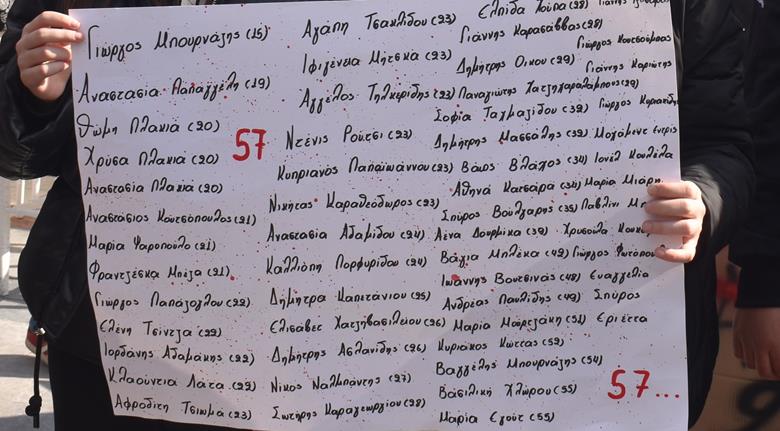 Γιώργος Μπουρνάζης (15)
Αναστασία Παπαγγελή (19)
Θώμη Πλακιά (20)
Χρύσα Πλακιά (20)
Αναστασία Πλακιά (20)
Αναστάσιος Κουτσόπουλος (21)
Μαρία Ψαροπούλο (21)
Φραντζέσκα Μπέζα (21)
Γιώργος Παπάζογλου (22)
Ελένη Τσίντζα (22)
Ιορδάνης Αδαμάκης (22)
Κλαούντια Λάτα (22)
Αφροδίτη Τσιωμά (23)
57
Αγάπη Τσακλίδου (23)
Ιφιγένεια Μήτσκα (23)
Αγγέλος Τηλκερίδης (23)
Ντένις Ρούτσι (23)
Κυπριανός Παπαϊωάννου (23)
Νικήτας Καραθεόδωρος (23)
Αναστασία Αδαμίδου (24)
Καλλιόπη Πορφυρίδου (24)
Δήμητρα Καπετάνιου (25)
Ελισάβες Χατζηβασιλείου (26)
Δημήτρης Ασλανίδης (26)
Νίκος Ναλμπάντης (27)
Σωτήρης Καραγεωργίου (28)
Ελπίδα Χούπα (28)
Γιάννης Καρασάββας (28)
Δημήτρης Οικου (29)
Παναγιώτης Χατζηχαραλάμπους (29)
Σοφία Ταχμαζίδου (32)
Δημήτρης Μασσάλης (32)
Βάιος Βλάχος (34)
Αθηνά Κατσάρα (34)
Σπύρος Βούλγαρης (35)
Λένα Δουρμίκα (39)
Βάγια Μπλέκα (42)
Ιωάννης Βουτσινάς (48)
Ανδρέας Παυλίδης (49)
Μαρία Μουρτζάκη (51)
Κυριάκος Κώστας (52)
Βαγγέλης Μπουρνάζης (54)
Βασιλική Χλώρου (55)
Μαρία Εγούτ (55)
Γιώργος Κουτσούμπας
Γιάννης Καριώτης
Γιώργος
Μοχάμεντ Εντρίς
Ιονέλ Κουλέλα
Μαρία
Παβλίν
Χρυσούλα
Γιώργος
Ευαγγελία
Σπύρος
Εριέττα
57...